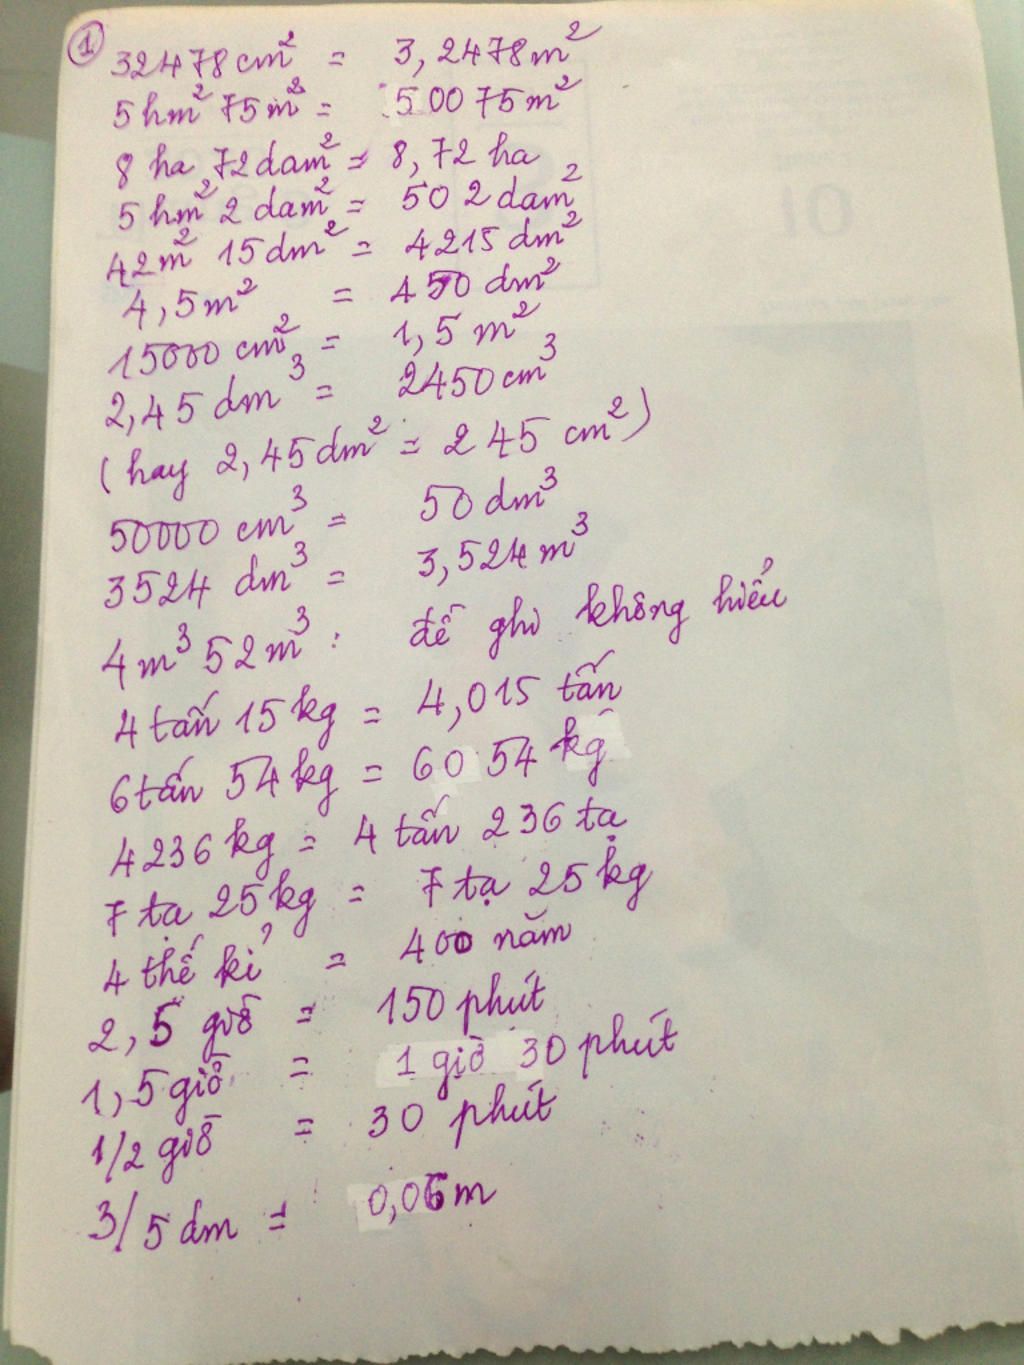 ①
32478cm² = 3,2478m²
5hm² 75m² = 50075m²
8 ha 72dam² = 8,72 ha
5hm² 2 dam² = 502 dam²
42m² 15dm² = 4215 dm²
4,5m² = 450 dm²
15000 cm² = 1,5 m²
2,45 dm³ = 2450cm³
(hay 2,45dm² = 245 cm²)
50000 cm³ = 50 dm³
3524 dm³ = 3,524 m³
4m³ 52m³ : đề ghi không hiểu
4 tấn 15kg = 4,015 tấn
6tấn 54kg = 6054 kg
4236kg = 4 tấn 236 tạ
7 tạ 25kg = 7 tạ 25kg
4 thế kỉ = 400 năm
2,5 giờ = 150 phút
1,5giờ = 1 giờ 30 phút
1/2 giờ = 30 phút
3/5 dm = 0,06m